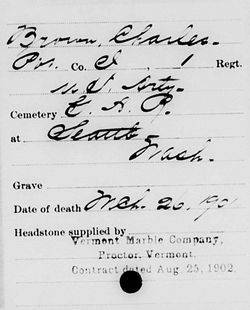 Brown, Charles.
Pvt. Co. I, 1 Regt.
U.S. Arty.
Cemetery G. A. R.
at Seattle
Wash.
Grave
Date of death Mch. 20, 190
Headstone supplied by
Vermont Marble Company,
Proctor, Vermont.
Contract dated Aug 25, 1902.